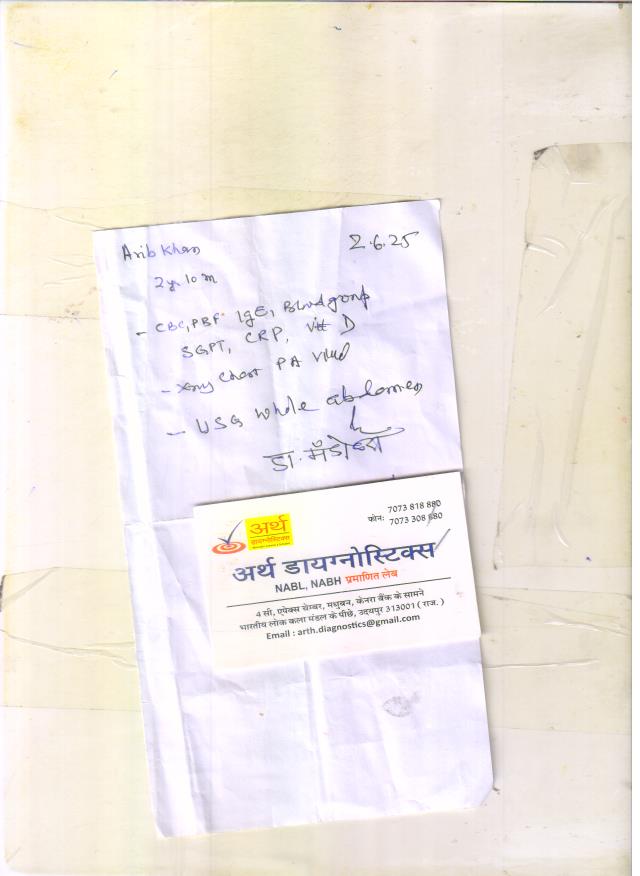 Arib Khan
2.6.25
2y 10 m
- CBC, PBF IgE, Blood group
SGPT, CRP, vit D
- Xray Chest PA view
- USG whole abdomen
डा.
7073 818 880
फोन: 7073 308 880
अर्थ
डायग्नोस्टिक्स
अर्थ डायग्नोस्टिक्स
NABL, NABH प्रमाणित लेब
4 सी, एपेक्स चेम्बर, मधुबन, केनरा बैंक के सामने
भारतीय लोक कला मंडल के पीछे, उदयपुर 313001 ( राज. )
Email : arth.diagnostics@gmail.com